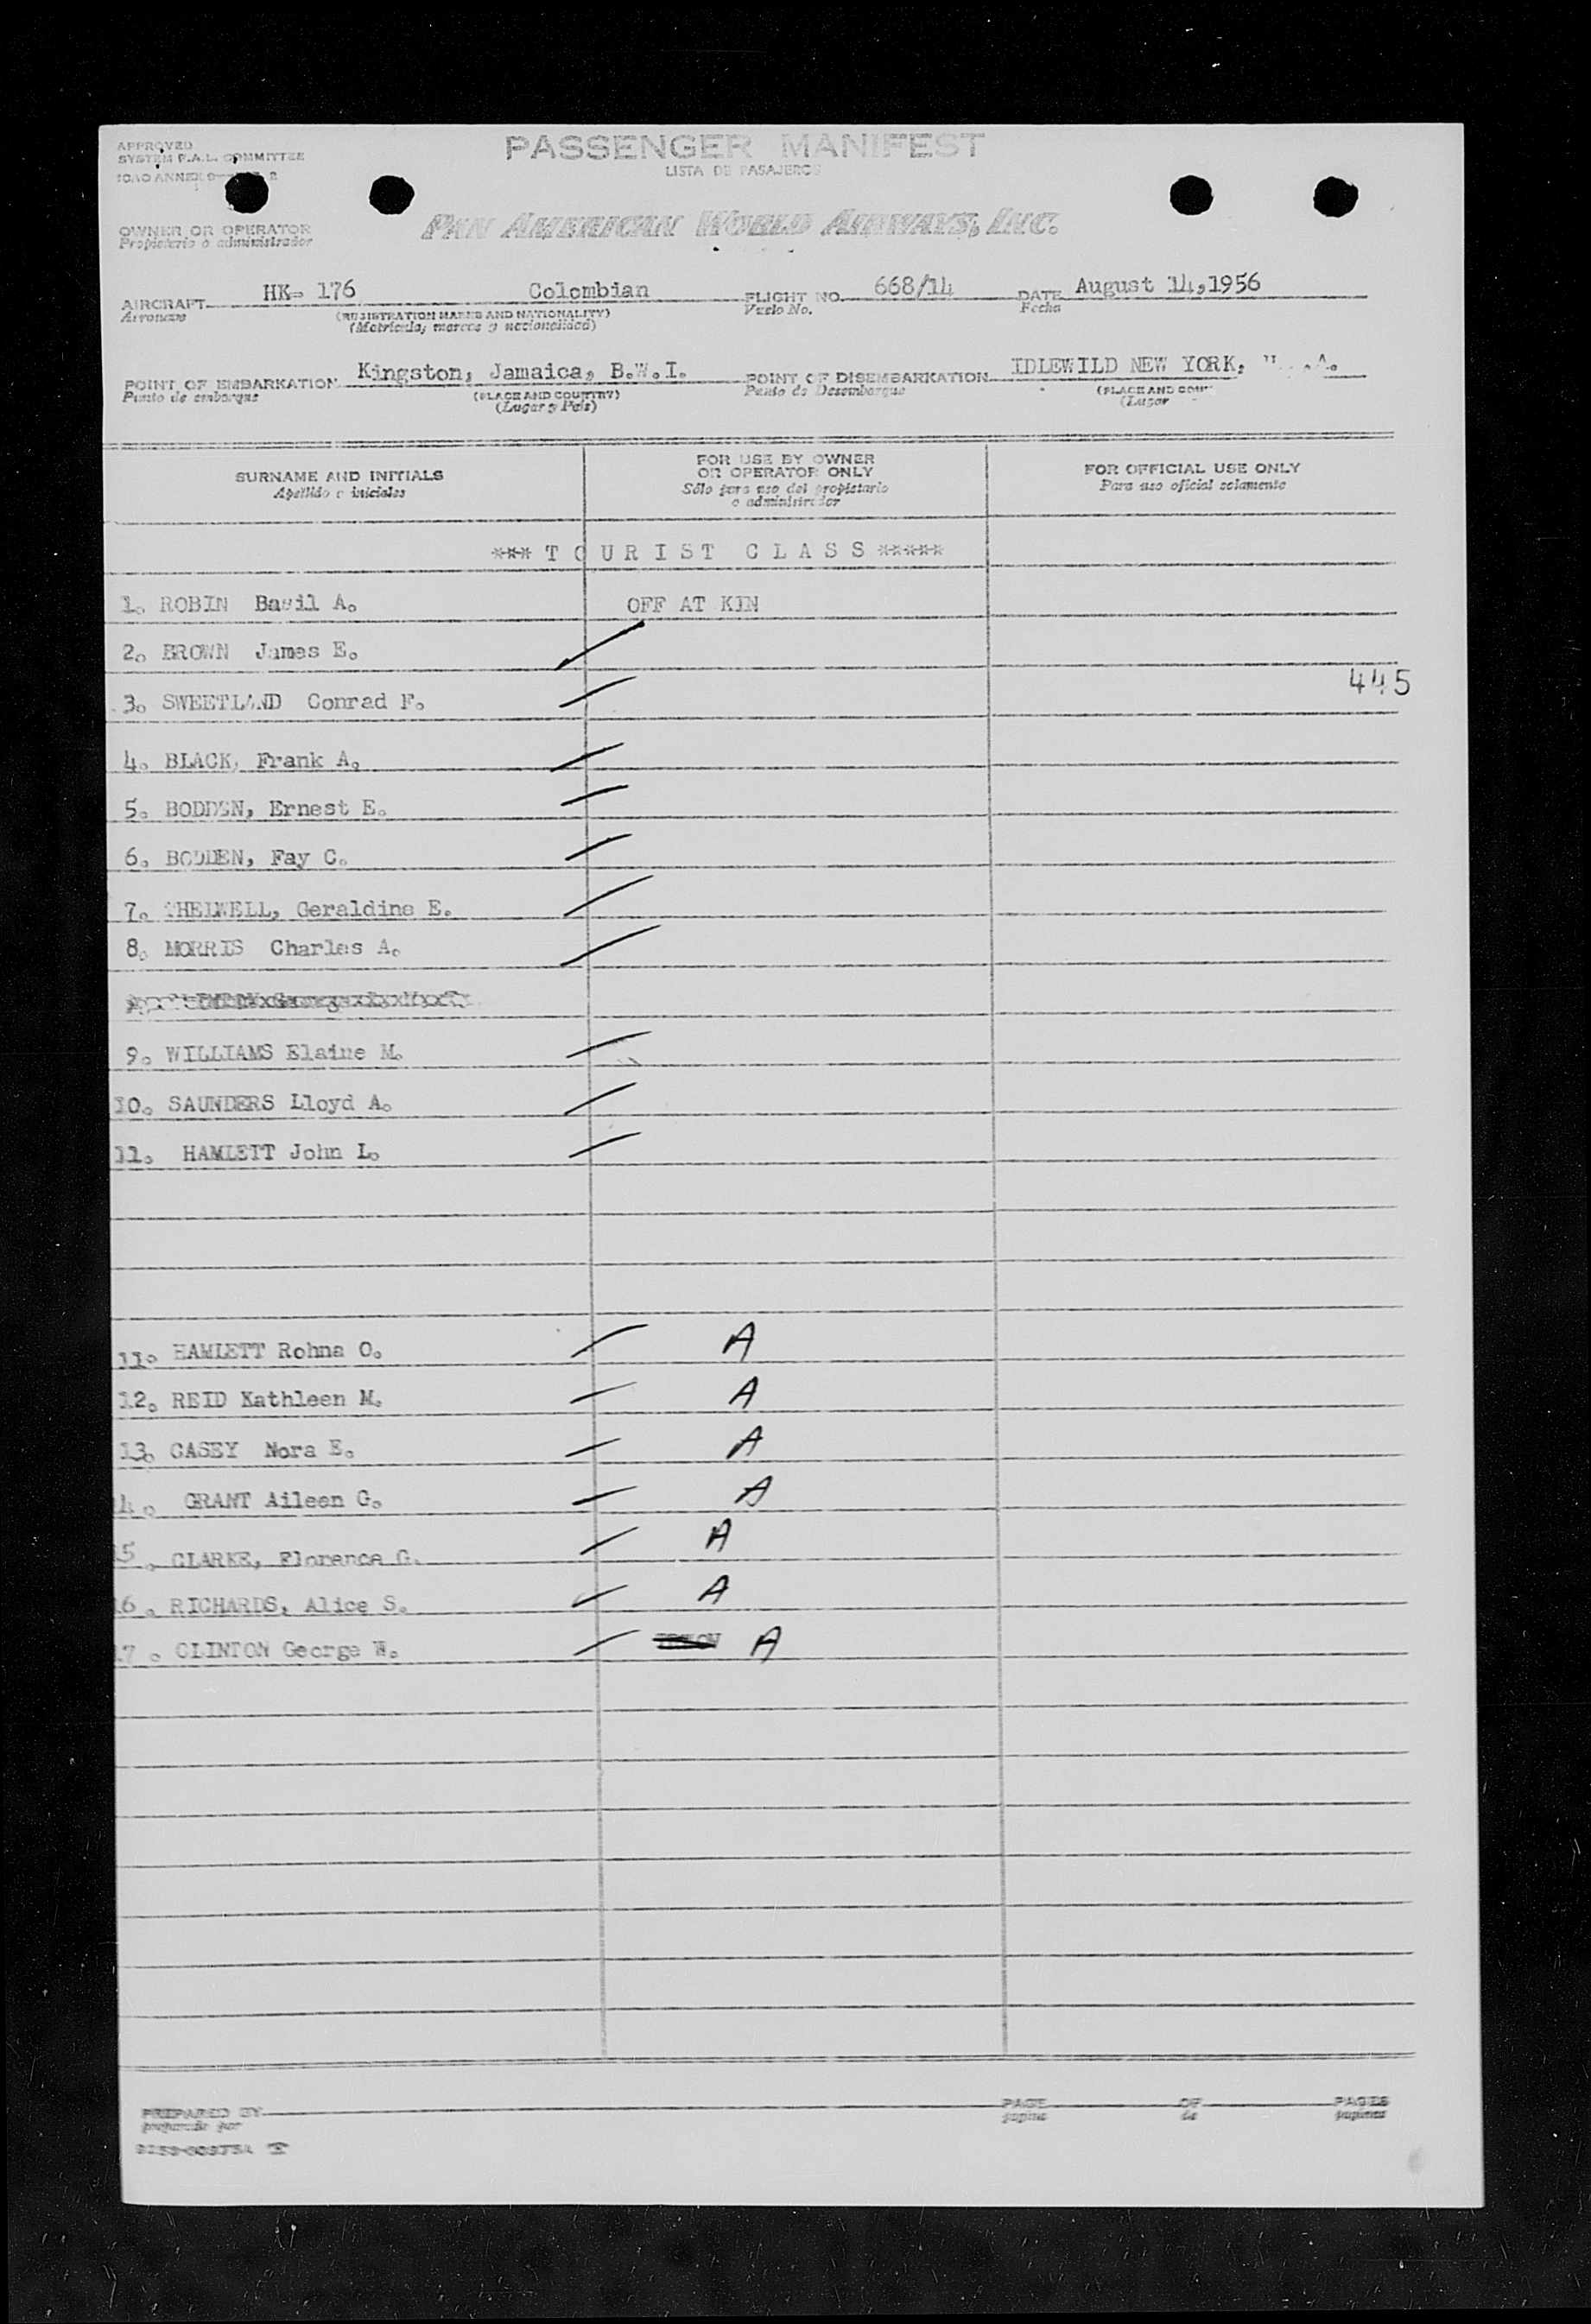 APPROVED
SYSTEM F.A.L. COMMITTEE
ICAO ANNEX 9
PASSENGER MANIFEST
LISTA DE PASAJEROS
OWNER OR OPERATOR
Propietario o administrador
PAN AMERICAN WORLD AIRWAYS, INC.
AIRCRAFT HK- 176 Colombian FLIGHT NO. 668/14 DATE August 14,1956
Aeronave (REGISTRATION MARKS AND NATIONALITY) Vuelo No. Fecha
(Matricula, marcas y nacionalidad)
POINT OF EMBARKATION Kingston, Jamaica, B.W.I. POINT OF DISEMBARKATION IDLEWILD NEW YORK,
Punto de embarque (PLACE AND COUNTRY) Punto de Desembarque (PLACE AND
(Lugar y Pais) (Lugar
SURNAME AND INITIALS
Apellido e iniciales
FOR USE BY OWNER
OR OPERATOR ONLY
Sólo para uso del propietario
o administrador
FOR OFFICIAL USE ONLY
Para uso oficial solamente
*** T O U R I S T C L A S S *****
1. ROBIN Basil A. OFF AT KIN
2. BROWN James E.
3. SWEETLAND Conrad F. 445
4. BLACK, Frank A.
5. BODDEN, Ernest E.
6. BODDEN, Fay C.
7. THELWELL, Geraldine E.
8. MORRIS Charles A.
9. WILLIAMS Elaine M.
10. SAUNDERS Lloyd A.
11. HAMLETT John L.
11. HAMLETT Rohna O. A
12. REID Kathleen M. A
13. CASEY Nora E. A
14. GRANT Aileen G. A
15. CLARKE, Florence G. A
16. RICHARDS, Alice S. A
17. CLINTON George W. A
PREPARED BY PAGE OF PAGES
preparado por pagina de paginas